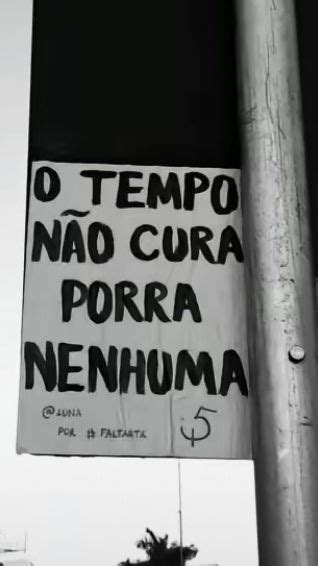 O TEMPO
NÃO CURA
PORRA
NENHUMA
@LUNA
POR #FALTAATA